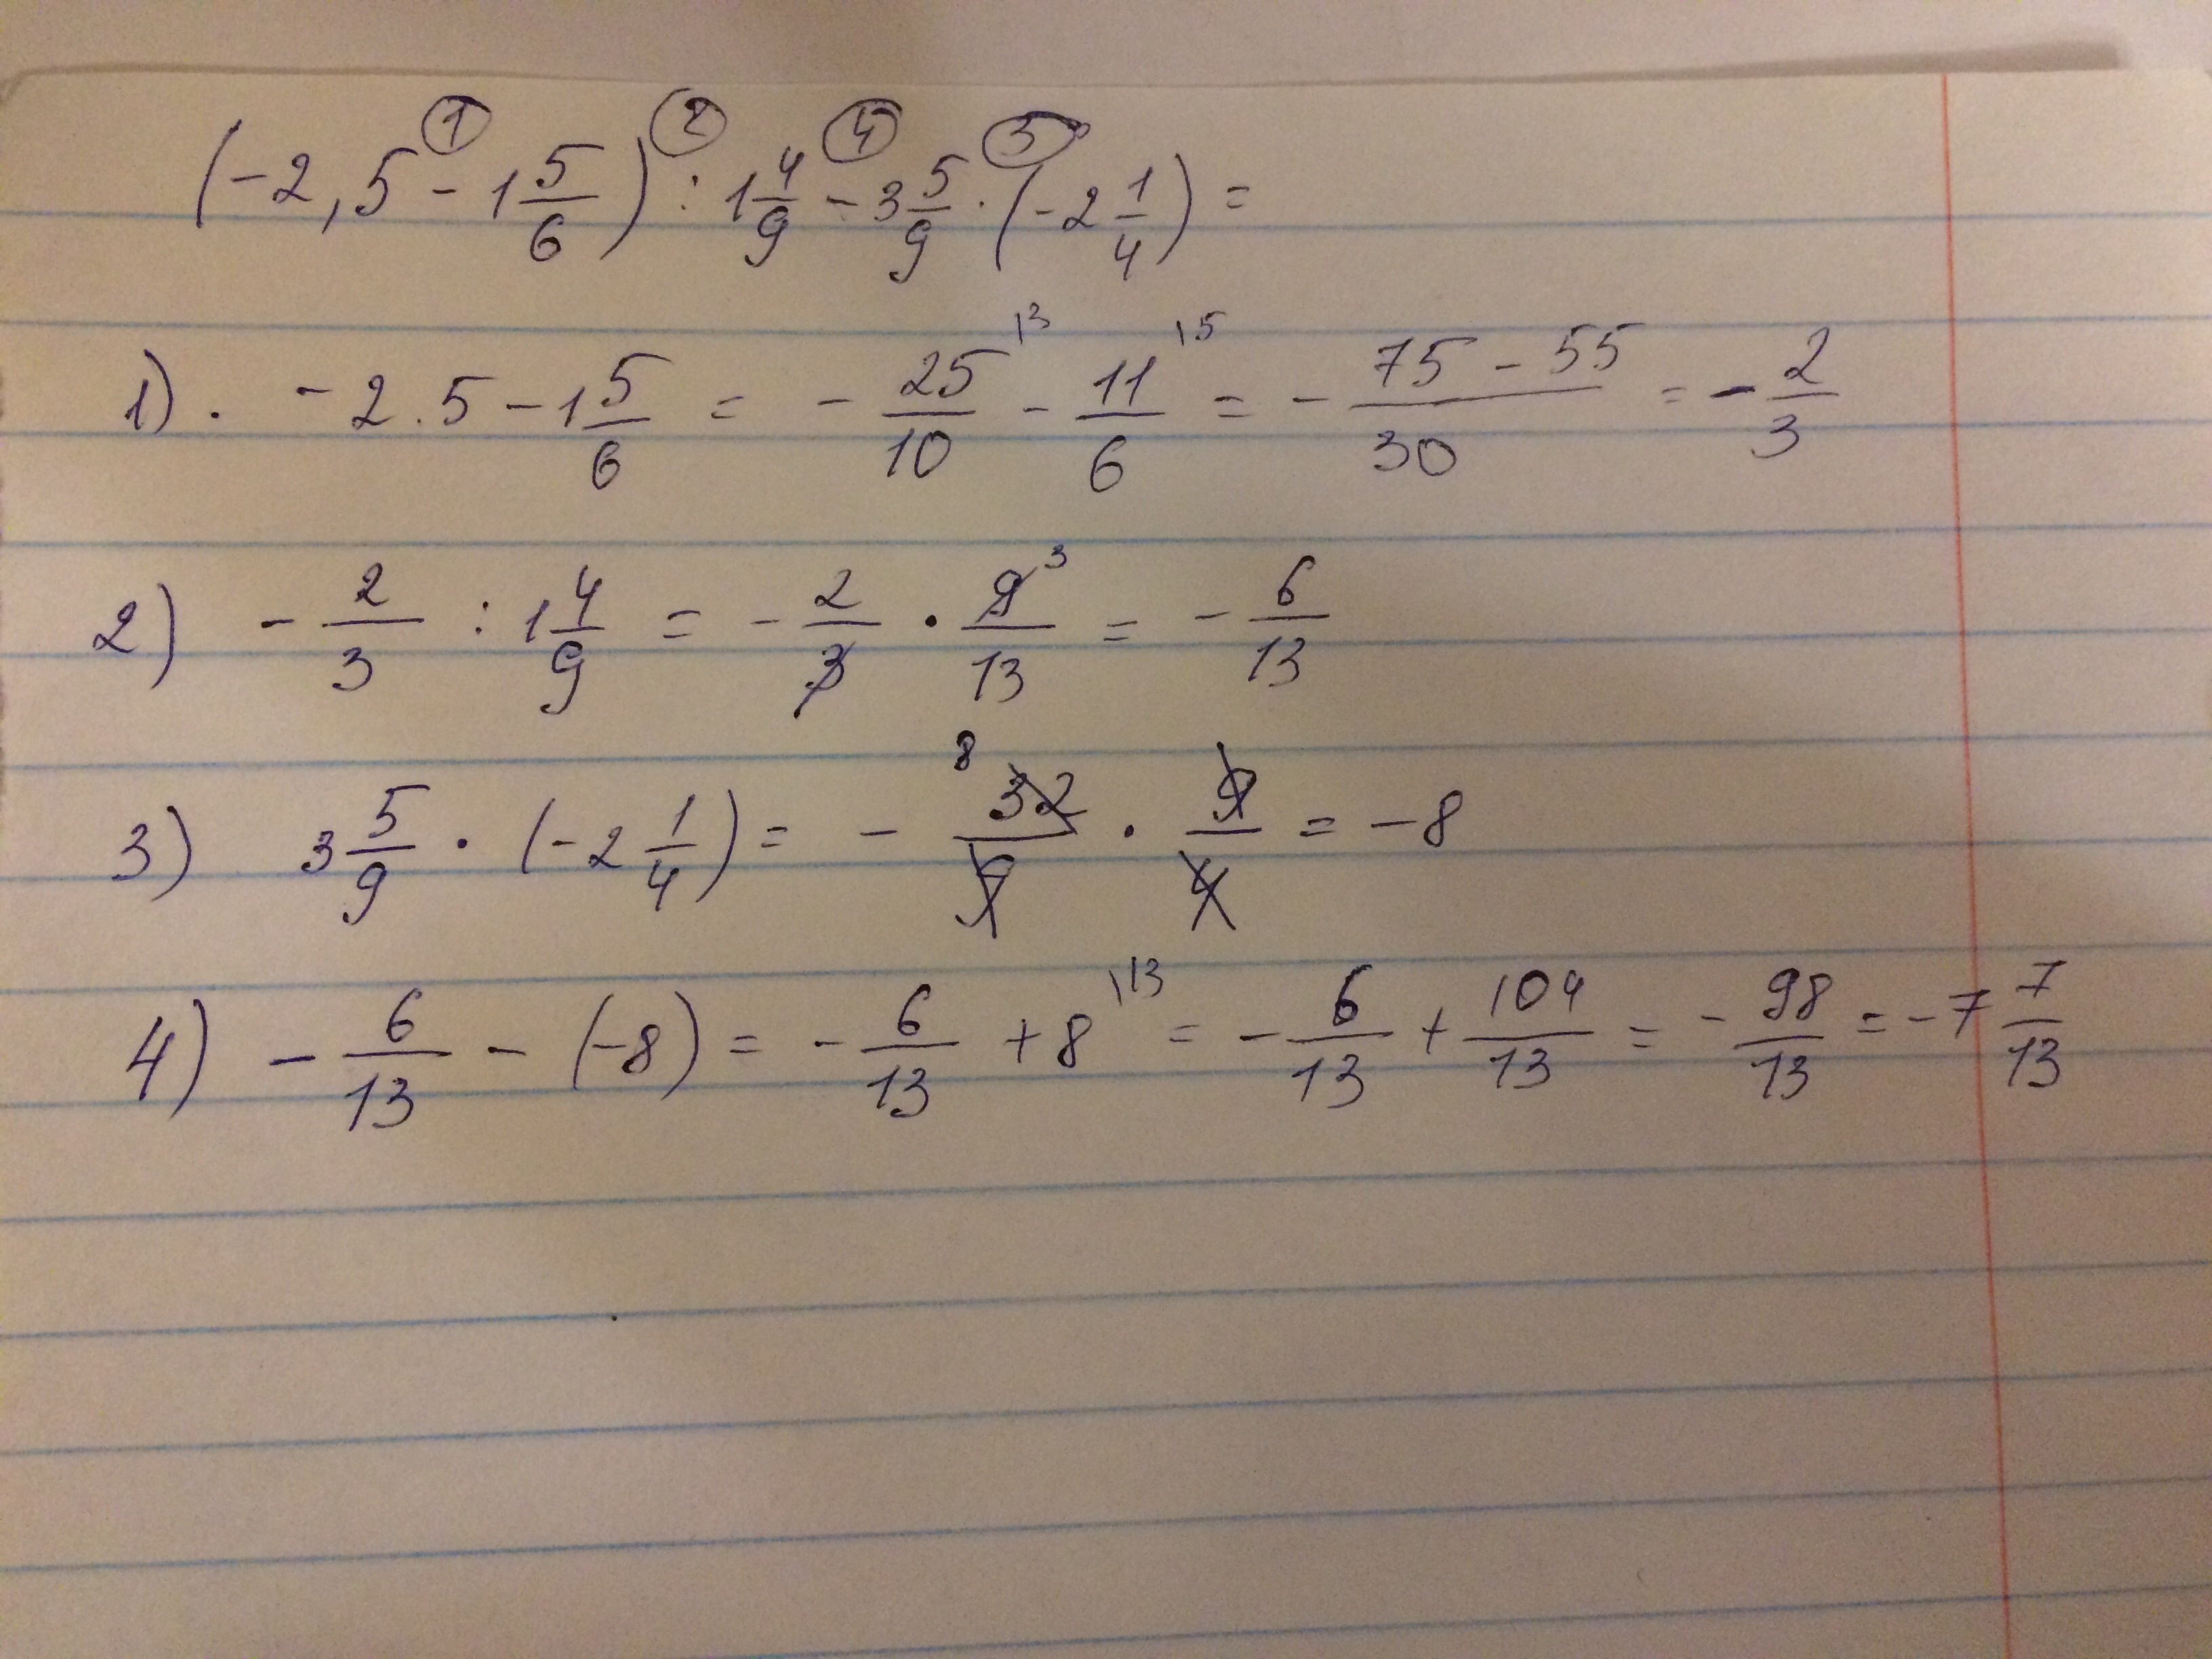 (-2,5 ① - 1 5/6) ② : 1 4/9 ④ - 3 5/9 ③ · (-2 1/4) =
1). -2.5 - 1 5/6 = - 25/10 \3 - 11/6 \5 = - (75 - 55)/30 = - 2/3
2) - 2/3 : 1 4/9 = - 2/3 · 9/13 3 = - 6/13
3) 3 5/9 · (-2 1/4) = - 8 32/9 · 9/4 = -8
4) - 6/13 - (-8) = - 6/13 + 8 \13 = - 6/13 + 104/13 = - 98/13 = -7 7/13